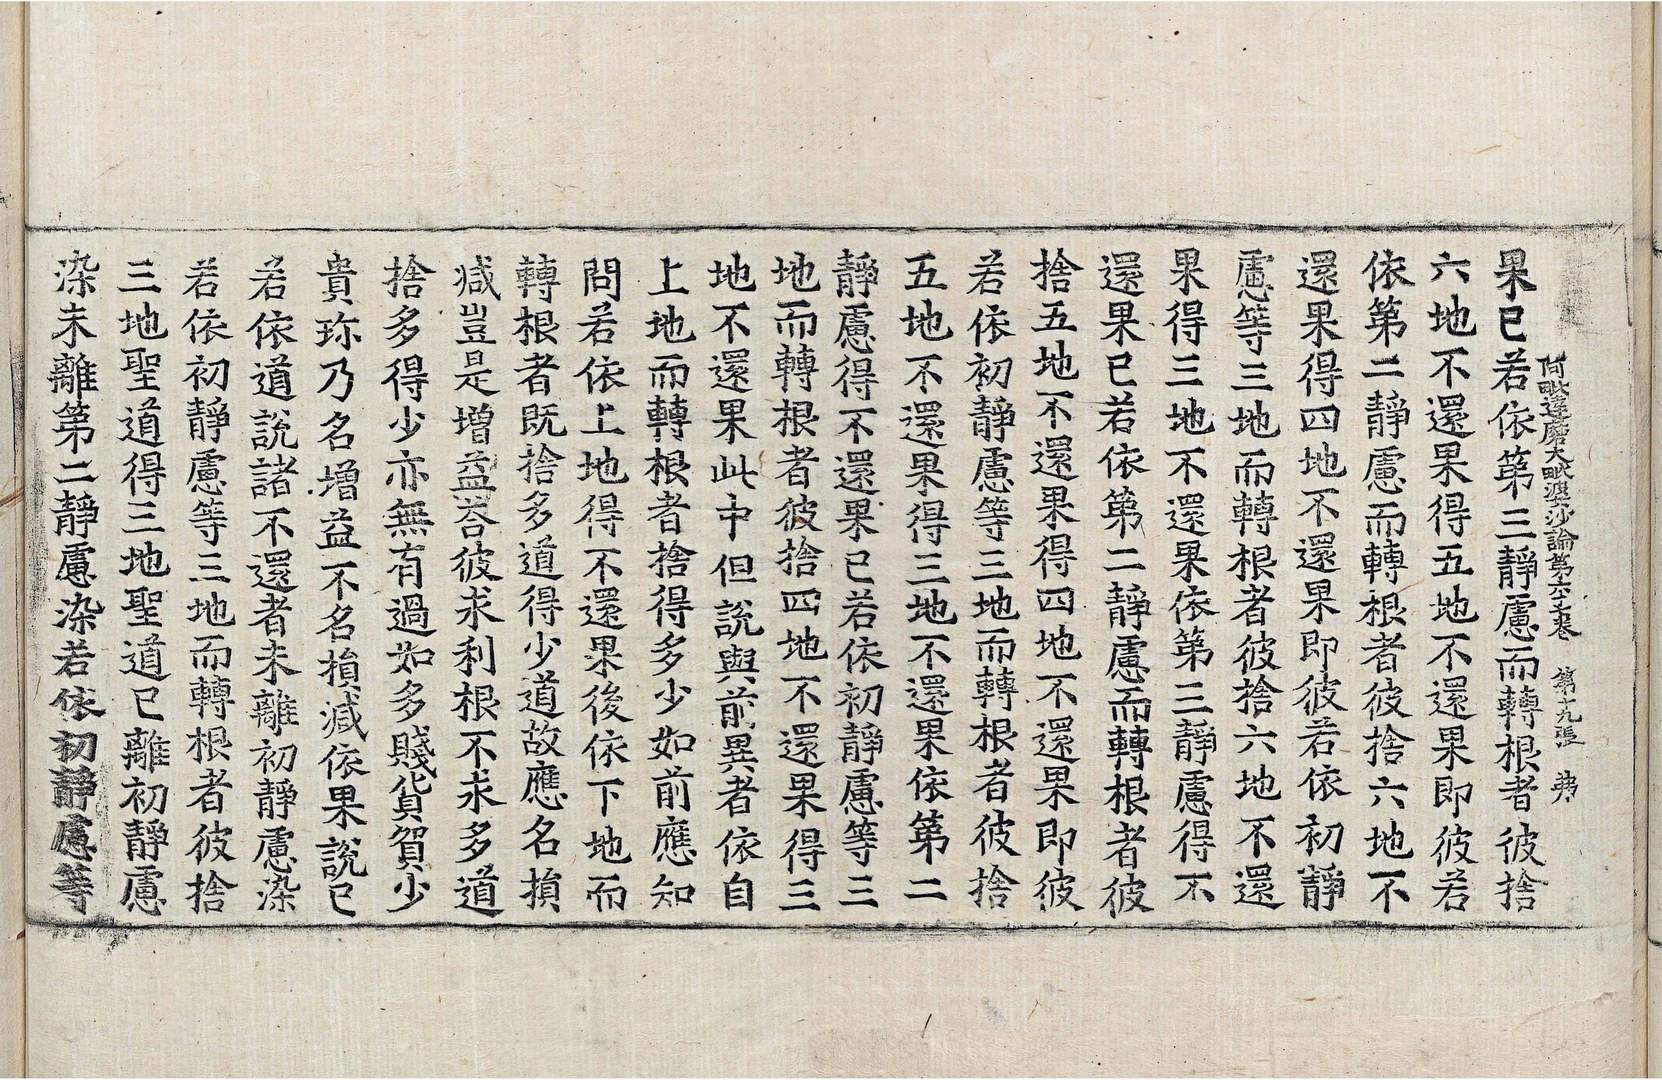 阿毗達磨大毗婆沙論第六十七卷 第十九張 弗
果已若依第三靜慮而轉根者彼捨
六地不還果得五地不還果即彼若
依第二靜慮而轉根者彼捨六地不
還果得四地不還果即彼若依初靜
慮等三地而轉根者彼捨六地不還
果得三地不還果依第三靜慮得不
還果已若依第二靜慮而轉根者彼
捨五地不還果得四地不還果即彼
若依初靜慮等三地而轉根者彼捨
五地不還果得三地不還果依第二
靜慮得不還果已若依初靜慮等三
地而轉根者彼捨四地不還果得三
地不還果此中但說與前異者依自
上地而轉根者捨得多少如前應知
問若依上地得不還果後依下地而
轉根者既捨多道得少道故應名損
減豈是增益荅彼求利根不求多道
捨多得少亦無有過如多賤貨貿少
貴珎乃名增益不名損減依果說已
若依道說諸不還者未離初靜慮染
若依初靜慮等三地而轉根者彼捨
三地聖道得三地聖道已離初靜慮
染未離第二靜慮染若依初靜慮等